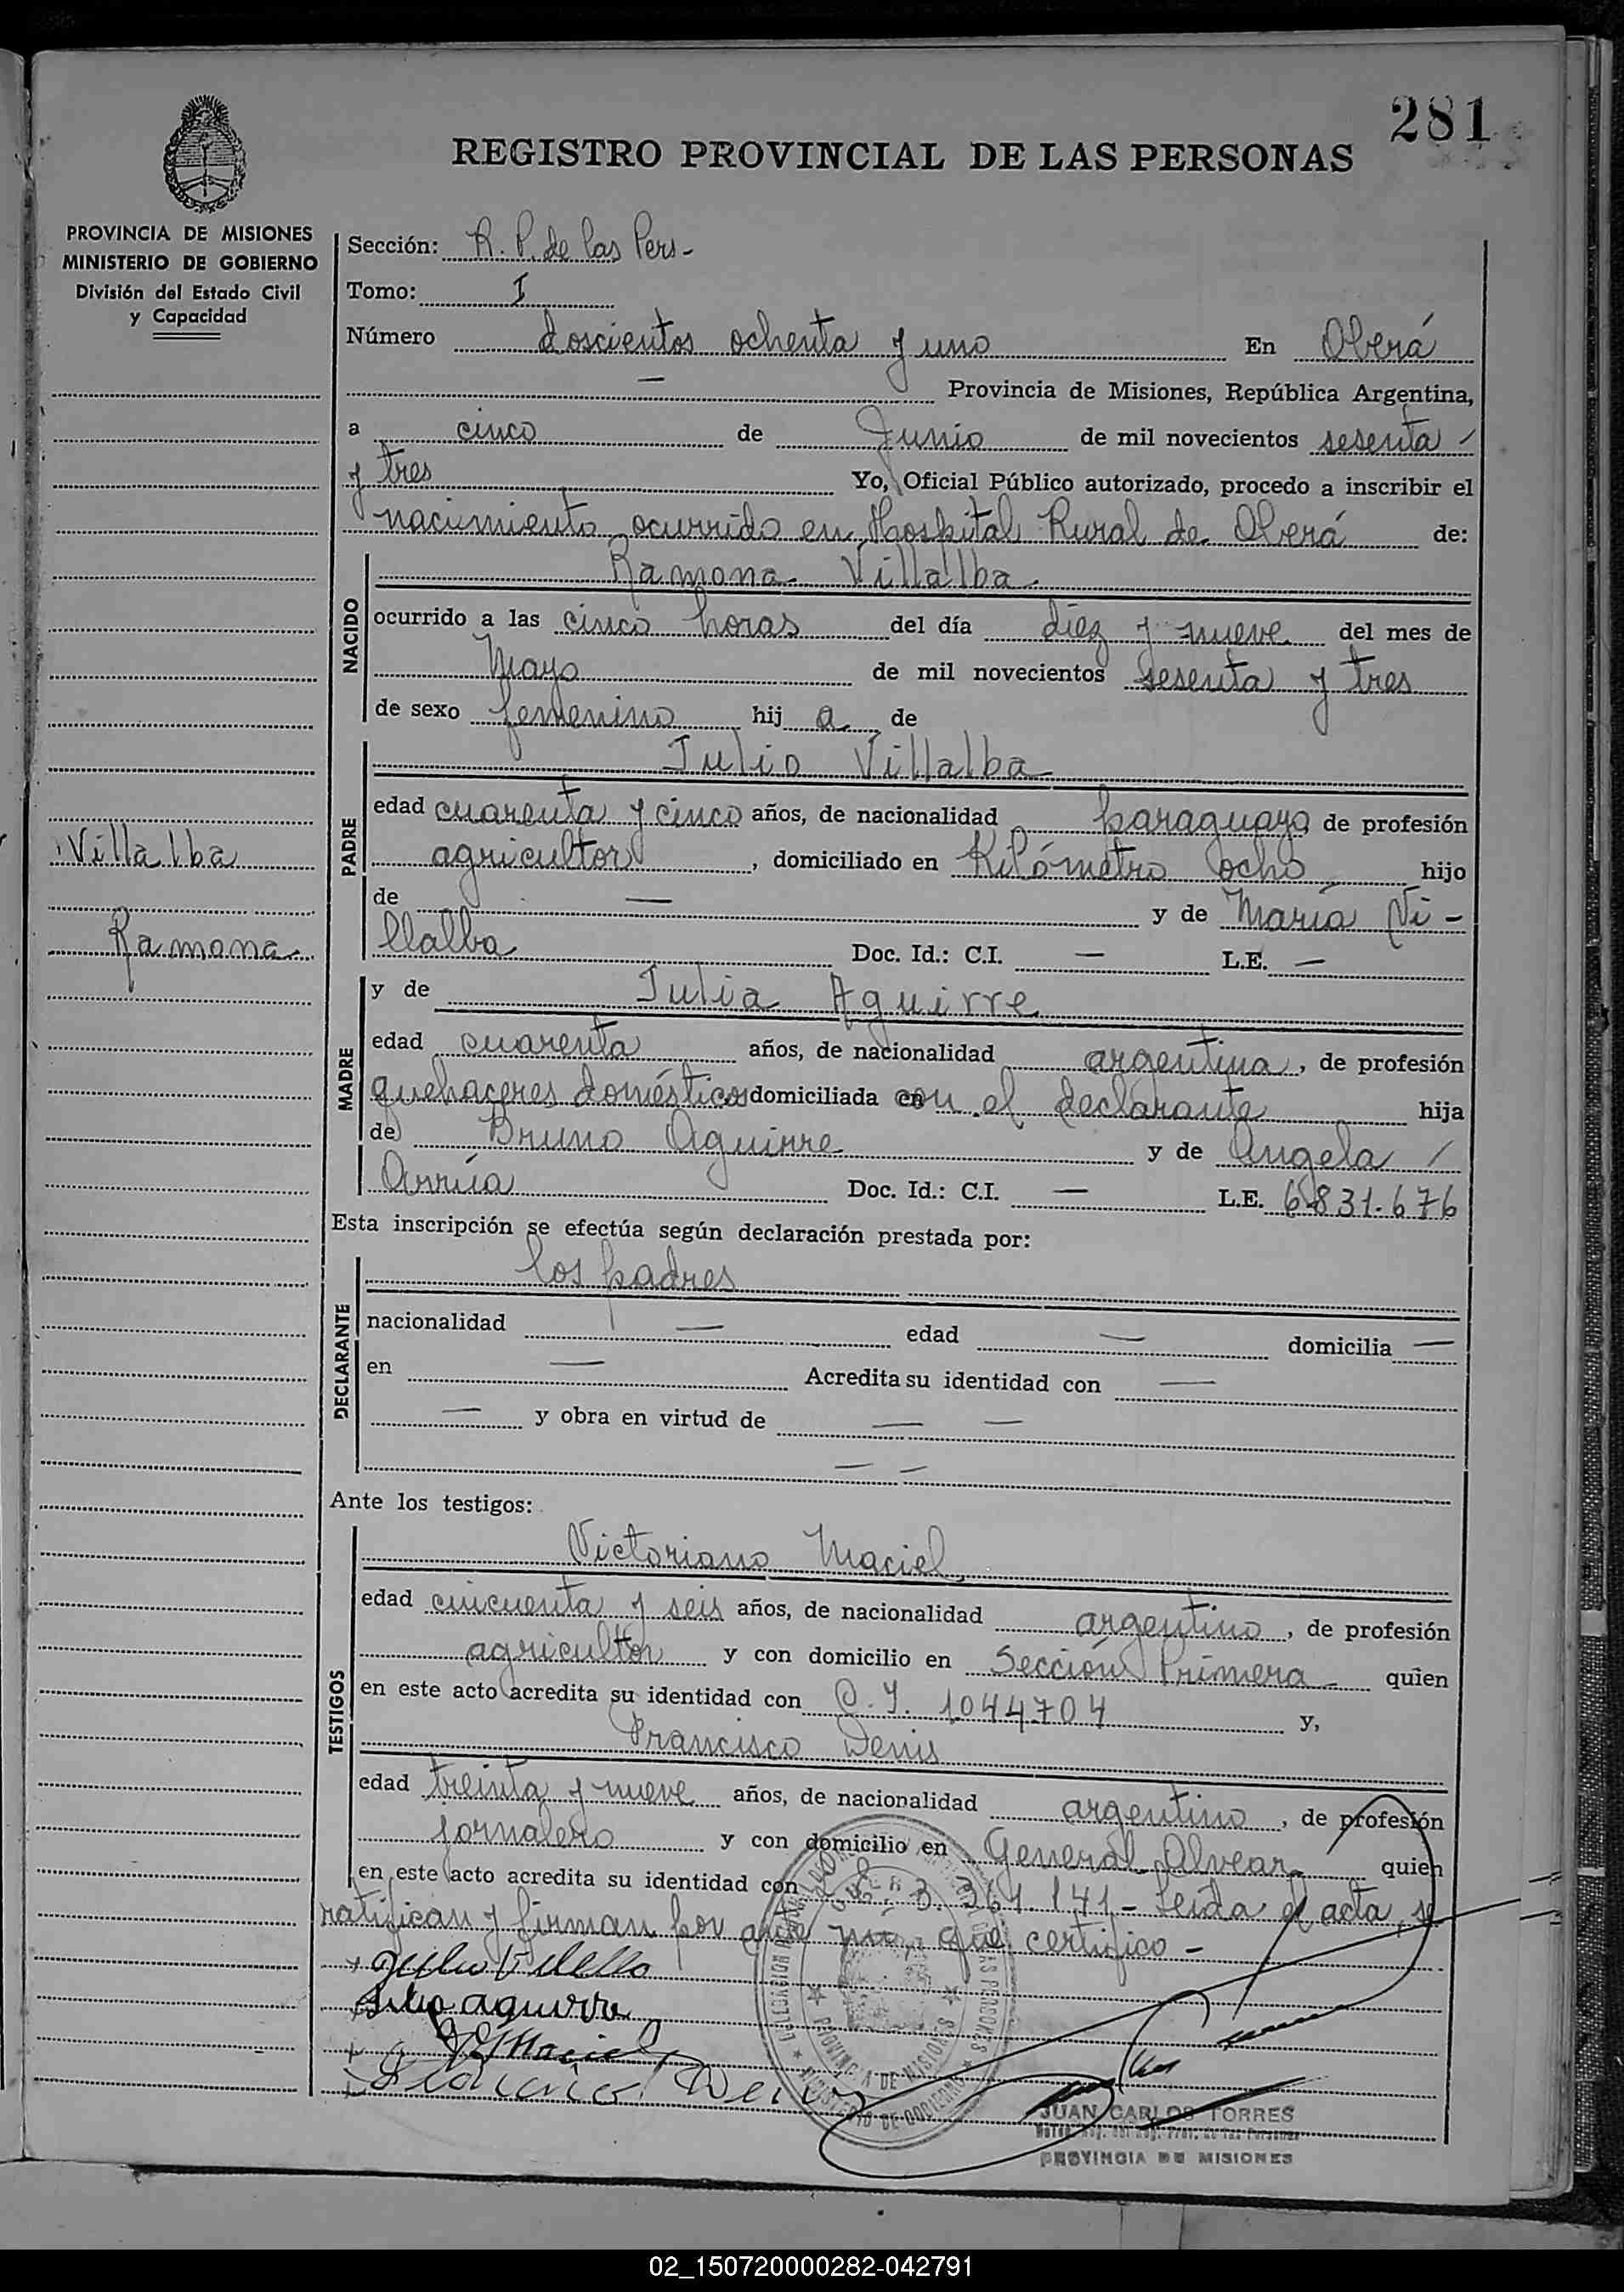 281
REGISTRO PROVINCIAL DE LAS PERSONAS
PROVINCIA DE MISIONES
MINISTERIO DE GOBIERNO
División del Estado Civil
y Capacidad
Sección: R. P. de las Pers-
Tomo: I
Número doscientos ochenta y uno En Oberá
— Provincia de Misiones, República Argentina,
a cinco de Junio de mil novecientos sesenta /
y tres Yo, Oficial Público autorizado, procedo a inscribir el
nacimiento ocurrido en Hospital Rural de Oberá de:
NACIDO
Ramona Villalba
ocurrido a las cinco horas del día diez y nueve del mes de
Mayo de mil novecientos sesenta y tres
de sexo femenino hij a de
PADRE
Julio Villalba
edad cuarenta y cinco años, de nacionalidad paraguaya de profesión
agricultor, domiciliado en Kilómetro ocho hijo
de — y de María Vi-
llalba Doc. Id.: C.I. — L.E. —
Villalba
Ramona
MADRE
y de Julia Aguirre
edad cuarenta años, de nacionalidad argentina, de profesión
quehaceres domésticos domiciliada con el declarante hija
de Bruno Aguirre y de Angela /
Arrúa Doc. Id.: C.I. — L.E. 6.831.676
Esta inscripción se efectúa según declaración prestada por:
DECLARANTE
los padres
nacionalidad — edad — domicilia —
en — Acredita su identidad con —
— y obra en virtud de — —
— —
Ante los testigos:
TESTIGOS
Victoriano Maciel
edad cincuenta y seis años, de nacionalidad argentino, de profesión
agricultor y con domicilio en Sección Primera quien
en este acto acredita su identidad con C.I. 1044704 y,
Francisco Denis
edad treinta y nueve años, de nacionalidad argentino, de profesión
jornalero y con domicilio en General Alvear quien
en este acto acredita su identidad con 141- Leída el acta, se
ratifican y firman por ante mí, que certifico -
Julia aguirre
Maciel
Denis
PROVINCIA DE MISIONES
MINISTERIO DE GOBIERNO
JUAN CARLOS TORRES
PROVINCIA DE MISIONES
02_150720000282-042791